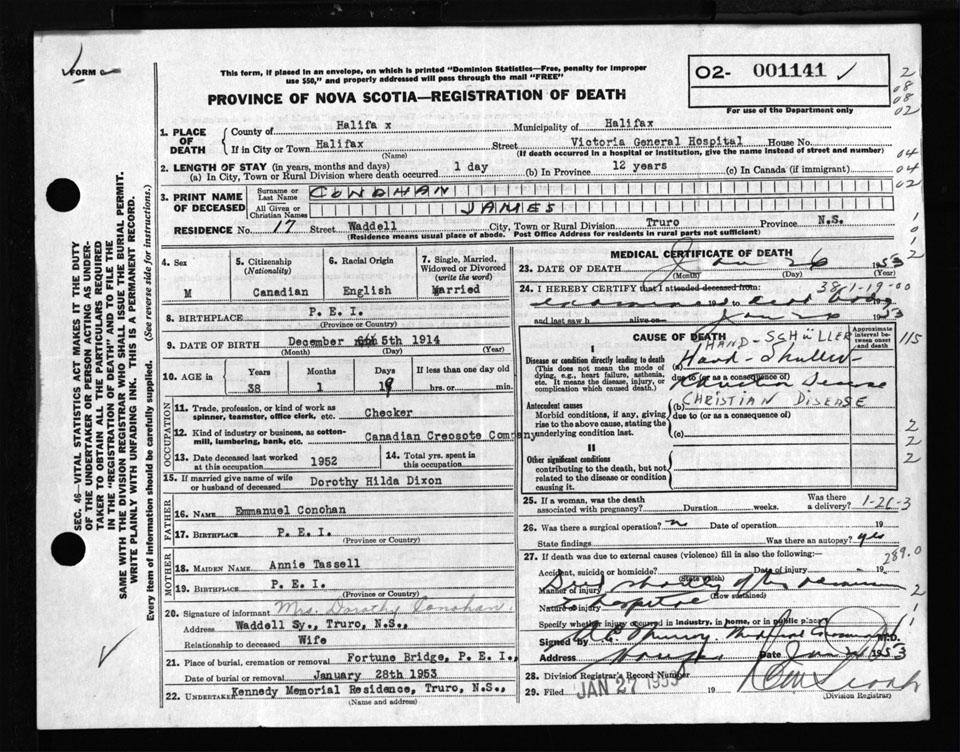 FORM
This form, if placed in an envelope, on which is printed "Dominion Statistics—Free, penalty for improper
use $50," and properly addressed will pass through the mail "FREE"
PROVINCE OF NOVA SCOTIA—REGISTRATION OF DEATH
02- 001141
For use of the Department only
2
08
08
02
04
04
02
SEC. 46—VITAL STATISTICS ACT MAKES IT THE DUTY
OF THE UNDERTAKER OR PERSON ACTING AS UNDER-
TAKER TO OBTAIN ALL THE PARTICULARS REQUIRED
IN THE "REGISTRATION OF DEATH" AND TO FILE THE
SAME WITH THE DIVISION REGISTRAR WHO SHALL ISSUE THE BURIAL PERMIT.
WRITE PLAINLY WITH UNFADING INK. THIS IS A PERMANENT RECORD.
Every item of information should be carefully supplied. (See reverse side for instructions.)
1. PLACE OF DEATH
County of Halifa x Municipality of Halifax
If in City or Town Halifax Street Victoria General Hospital House No.
(Name) (If death occurred in a hospital or institution, give the name instead of street and number)
2. LENGTH OF STAY (in years, months and days)
(a) In City, Town or Rural Division where death occurred 1 day (b) In Province 12 years (c) In Canada (if immigrant)
3. PRINT NAME OF DECEASED
Surname or Last Name CONOHAN
All Given or Christian Names JAMES
RESIDENCE No. 17 Street Waddell City, Town or Rural Division Truro Province N.S.
(Residence means usual place of abode. Post Office Address for residents in rural parts not sufficient)
4. Sex M
5. Citizenship (Nationality) Canadian
6. Racial Origin English
7. Single, Married, Widowed or Divorced (write the word) Married
8. BIRTHPLACE P. E. I.
(Province or Country)
9. DATE OF BIRTH December 5th 1914
(Month) (Day) (Year)
10. AGE in Years 38 Months 1 Days 19 If less than one day hrs. or min.
OCCUPATION
11. Trade, profession, or kind of work as spinner, teamster, office clerk, etc. Checker
12. Kind of industry or business, as cotton-mill, lumbering, bank, etc. Canadian Creosote Company
13. Date deceased last worked at this occupation 1952
14. Total yrs. spent in this occupation
15. If married give name of wife or husband of deceased Dorothy Hilda Dixon
FATHER
16. NAME Emmanuel Conohan
17. BIRTHPLACE P. E. I.
(Province or Country)
MOTHER
18. MAIDEN NAME Annie Tassell
19. BIRTHPLACE P. E. I.
(Province or Country)
20. Signature of informant Mrs. Dorothy Conohan.
Address Waddell Sy., Truro, N.S.,
Relationship to deceased Wife
21. Place of burial, cremation or removal Fortune Bridge, P. E. I.,
Date of burial January 28th 1953
22. UNDERTAKER Kennedy Memorial Residence, Truro, N.S.,
(Name and address)
MEDICAL CERTIFICATE OF DEATH
23. DATE OF DEATH Jan 26 1953
(Month) (Day) (Year)
24. I HEREBY CERTIFY that I attended deceased from:
38/1-19-00
19 to dead body
and last saw h alive on 1953
CAUSE OF DEATH
Approximate interval between onset and death
I
HAND-SCHÜLLER
115
Disease or condition directly leading to death
(This does not mean the mode of dying, e.g., heart failure, asthenia, etc. It means the disease, injury, or complication which caused death.)
Hand-Shuller-
(a)
due to (or as a consequence of)
Christian Disease
CHRISTIAN DISEASE
Antecedent causes
Morbid conditions, if any, giving rise to the above cause, stating the underlying condition last.
(b)
due to (or as a consequence of)
(c)
II
Other significant conditions
contributing to the death, but not related to the disease or condition causing it.
2
2
2
25. If a woman, was the death associated with pregnancy? Duration weeks. Was there a delivery?
1-26-3
26. Was there a surgical operation? n Date of operation 19
State findings Was there an autopsy? yes
27. If death was due to external causes (violence) fill in also the following:—
289.0
Accident, suicide or homicide? Date of injury 19
(State which)
Manner of injury Died shortly after
(How sustained)
Nature of injury
Specify whether injury occurred in industry, in home, or in public place
Signed by M.D.
Address Date Jan 1953
28. Division Registrar's Record Number
29. Filed JAN 27 1953 19
(Division Registrar)